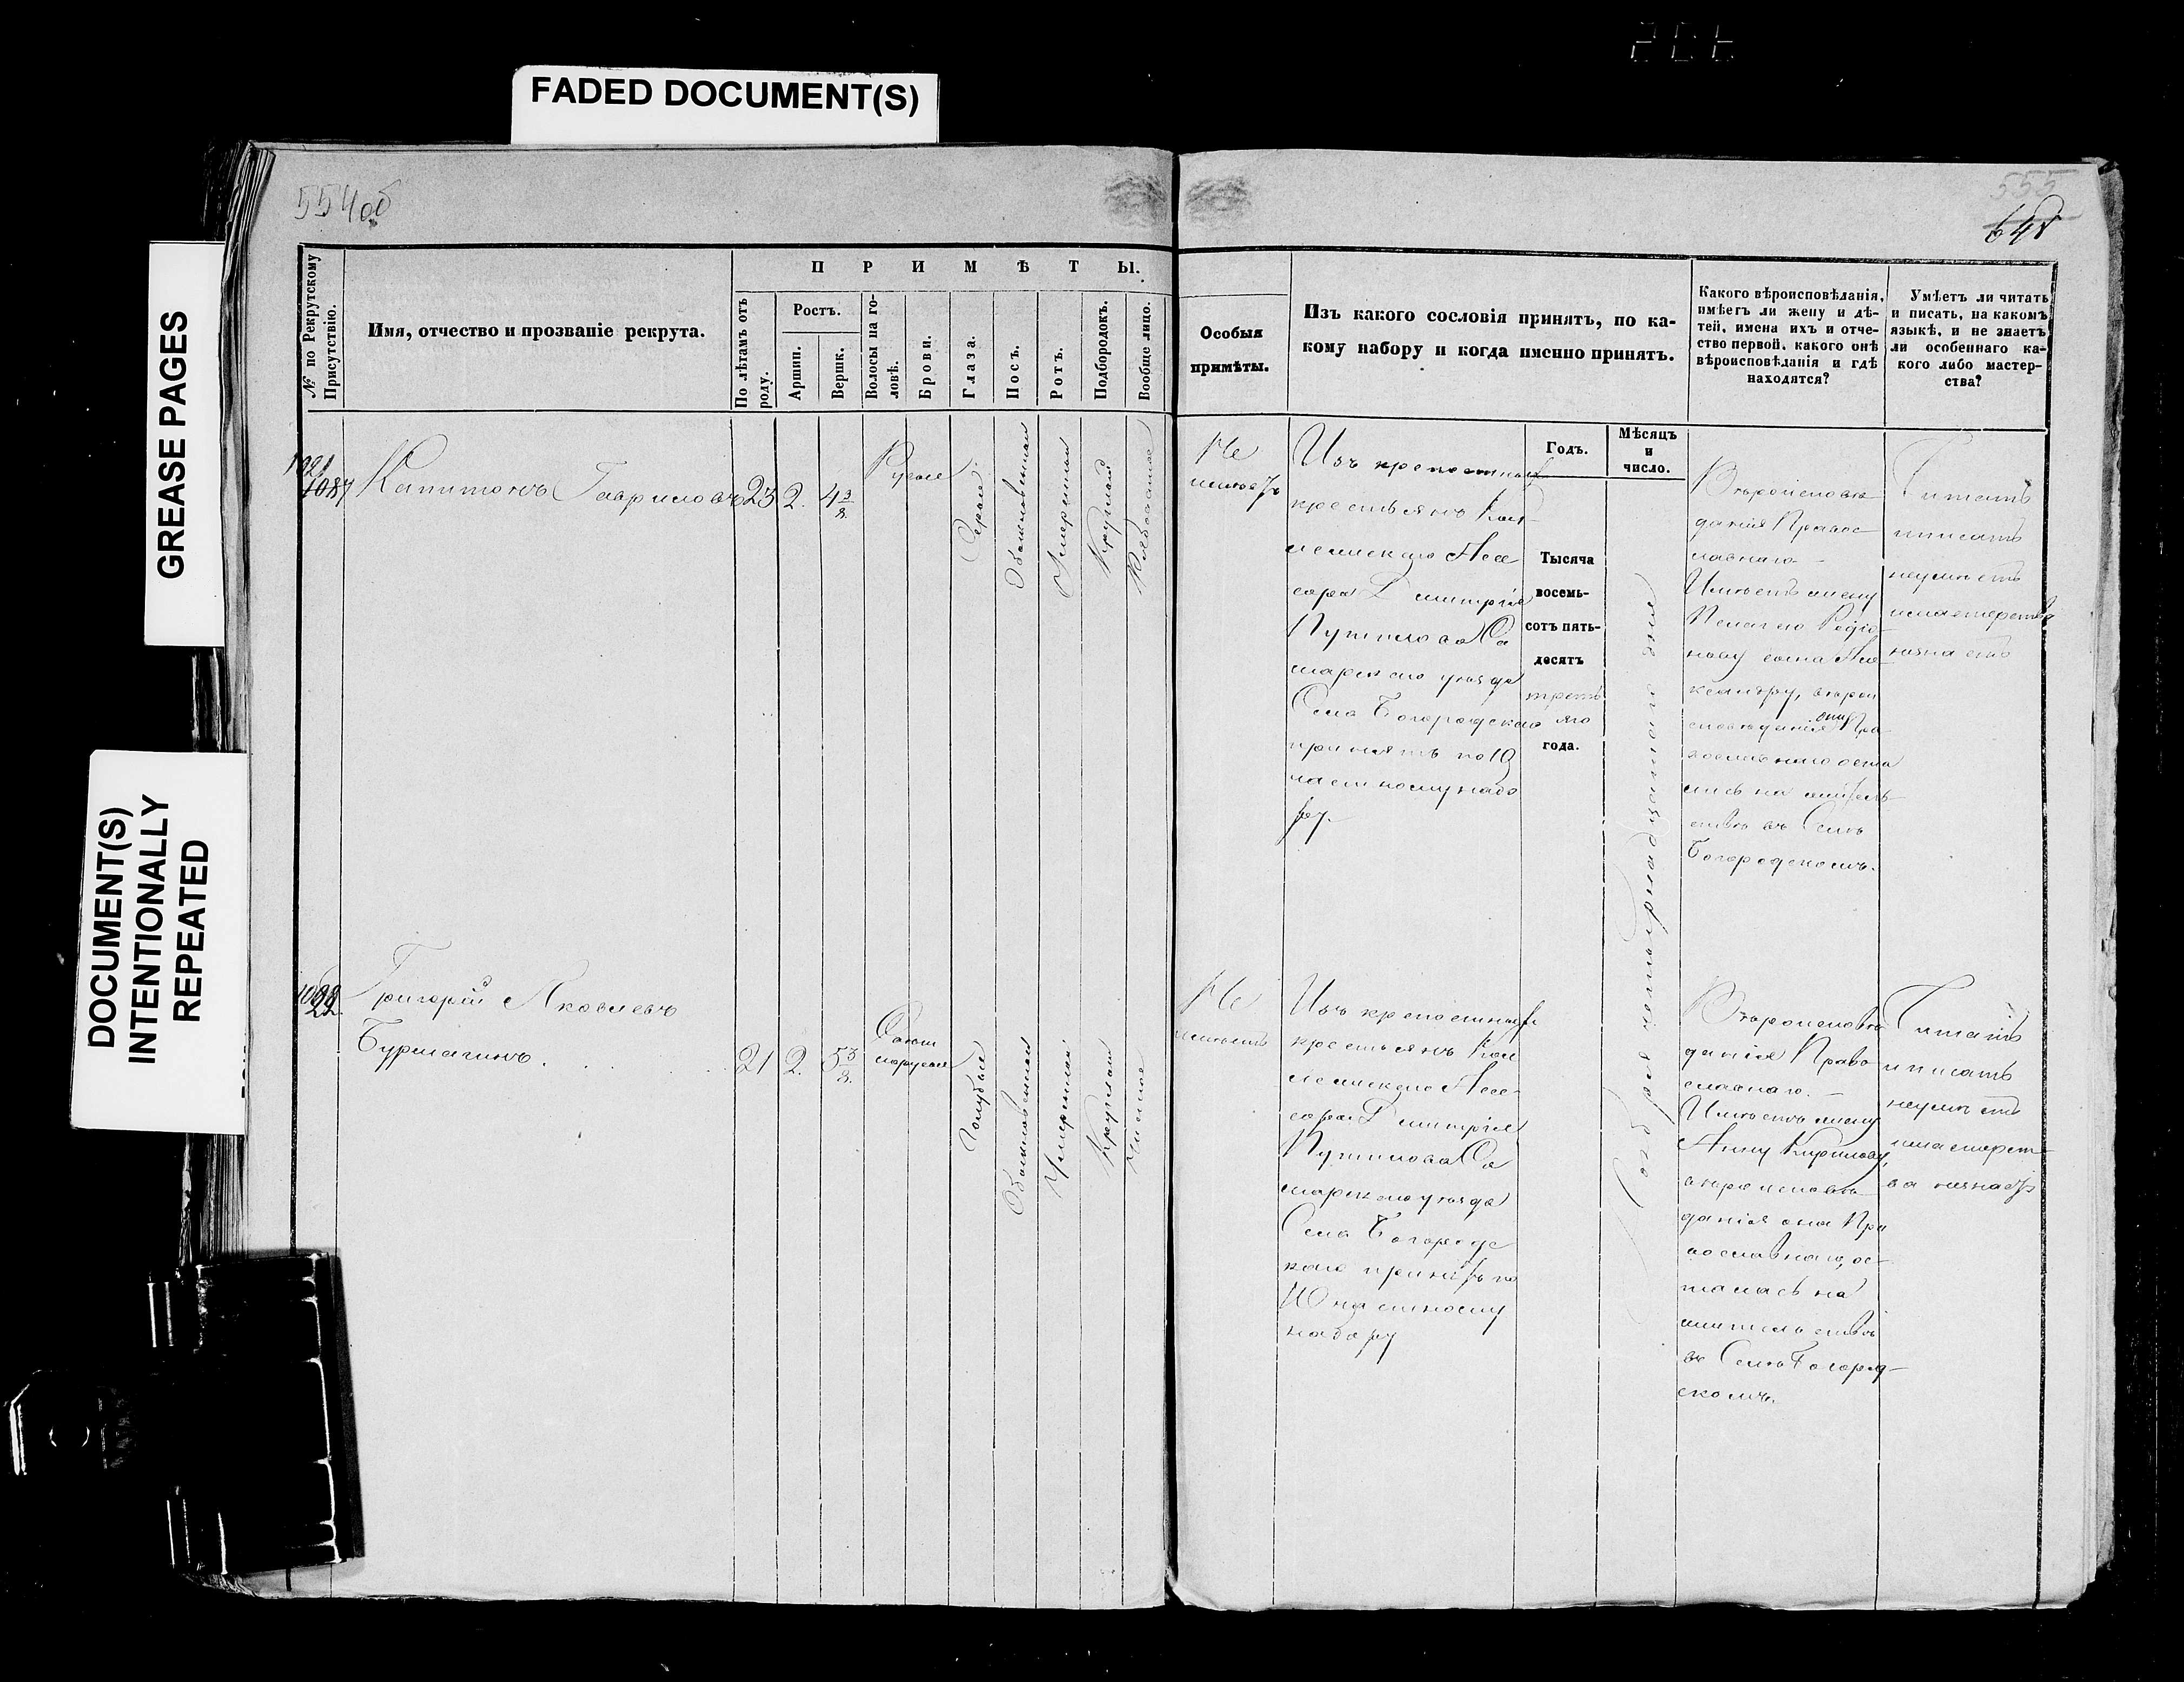 FADED DOCUMENT(S)
GREASE PAGES
DOCUMENT(S)
INTENTIONALLY
REPEATED
554об
555
№ по Рекрутскому
Присутствію.
Имя, отчество и прозваніе рекрута.
ПРИМѢТЫ.
По лѣтамъ отъ
роду.
Ростъ.
Аршин.
Вершк.
Волосы на го-
ловѣ.
Брови.
Глаза.
Носъ.
Ротъ.
Подбородокъ.
Вообще лицо.
Особыя
примѣты.
Изъ какого сословія принятъ, по ка-
кому набору и когда именно принятъ.
Какого вѣроисповѣданія,
имѣетъ ли жену и дѣ-
тей, имена ихъ и отче-
ство первой, какого онѣ
вѣроисповѣданія и гдѣ
находятся?
Умѣетъ ли читать
и писать, на какомъ
языкѣ, и не знаетъ
ли особеннаго ка-
кого либо мастер-
ства?
Годъ.
Мѣсяцъ
и
число.
Тысяча
восемь-
сотъ пять-
десятъ
треть
яго
года.
1087
Капитонъ Гавриловъ
23
2.
4 3/8
Русые
Серые
Обыкновенный
Умеренный
Круглый
Не
имѣетъ
Изъ крепостныхъ
крестьянъ Кол
лежскаго Асе
сора Дмитрія
Путилова Са
марскаго уѣзда
Села Богородскаго
принятъ по 10
частному набо
ру.
Вѣроисповѣ
данія Правос
лавнаго
Имѣетъ жену
Пелагею Родіо
нову сына Але
ксандру, вѣрои
сповѣданія они Пра
вославнаго оста
лись на житель
ствѣ въ Селѣ
Богородскомъ.
Читать
и писать
неумѣетъ
и мастерства
незнаетъ
Григорій Яковлевъ
Бурмагинъ.
21
2.
5 3/8
Свѣтло
русые
Голубые
Обыкновенный
Умеренный
Круглый
Чистое
Не
имѣетъ
Изъ крепостныхъ
крестьянъ Кол
лежскаго Асе-
сора Дмитрія
Путилова Са
марскаго уѣзда
Села Богородс
каго принятъ по
10 частному
набору
Вѣроисповѣ
данія Право
славнаго.
Имѣетъ жену
Анну Кирилову,
вѣроисповѣ
данія она Пра
вославнаго, ос-
талась на
жительствѣ
въ Селѣ Богород-
скомъ.
Читать
и писать
неумѣетъ
и мастерст-
ва незнаетъ